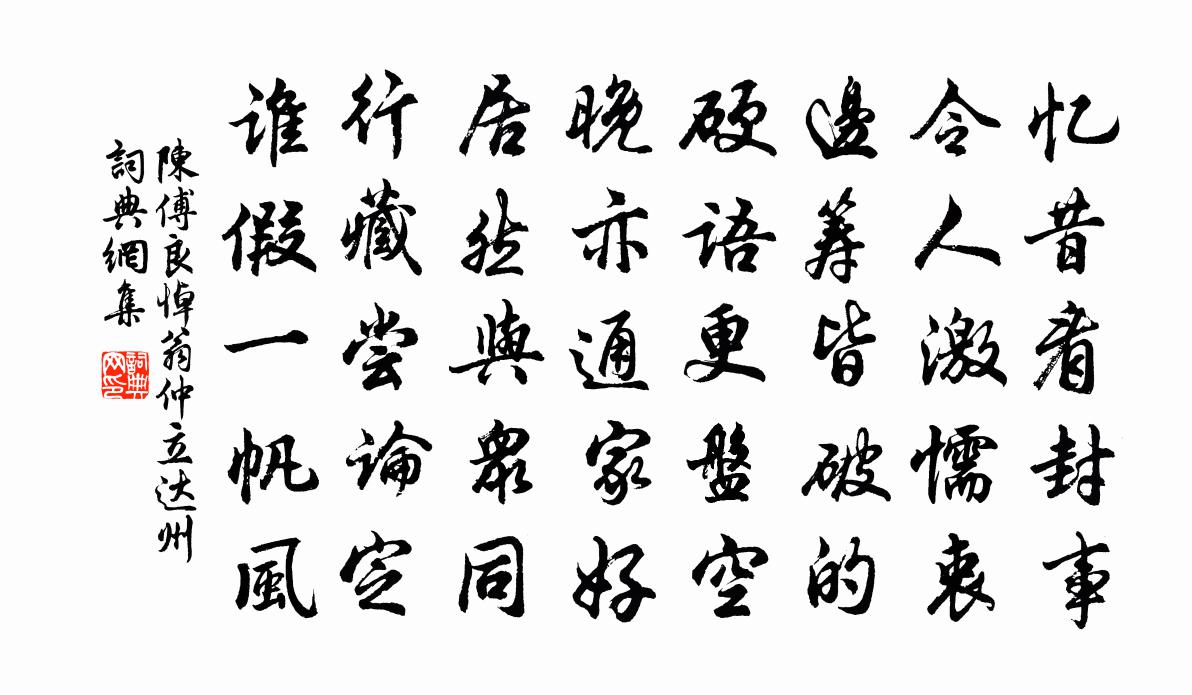 忆昔看封事
令人激懦衷
邊筹皆破的
硬语更盤空
晚亦通家好
居然與衆同
行藏尝論定
谁假一帆風
陳傅良悼翁仲立达州
詞典網集
詞典网印